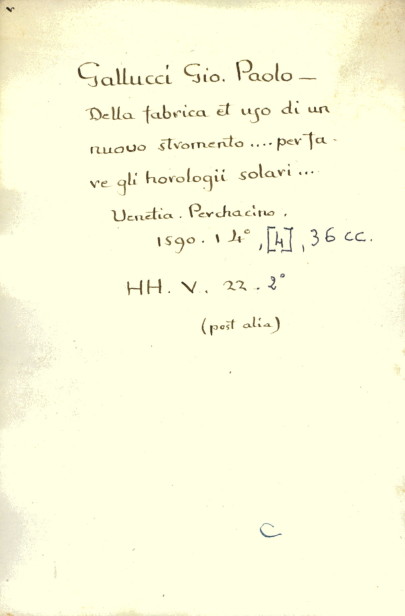 Gallucci Gio. Paolo —
Della fabrica et uso di un
nuovo stromento .... per fa-
re gli horologii solari ...
Venetia. Perchacino.
1590. 1 4°, [4], 36 cc.
HH. V. 22. 2°
(post alia)
C